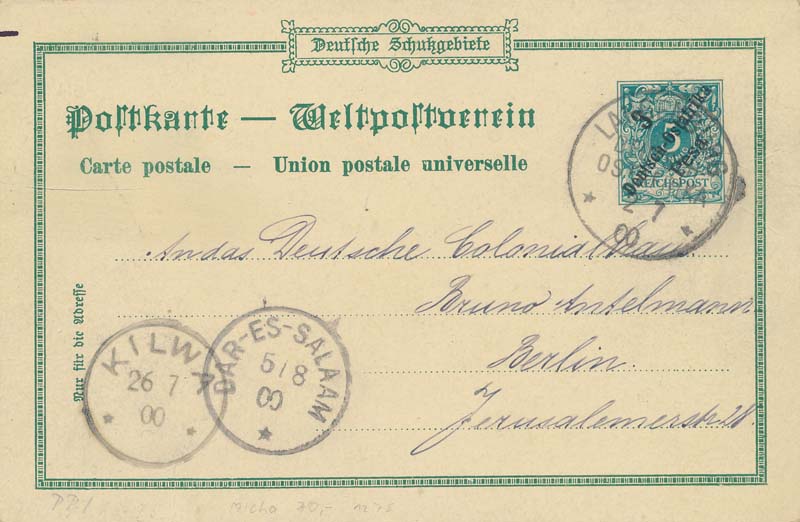 Deutsche Schutzgebiete
Postkarte — Weltpostverein
Carte postale — Union postale universelle
3
Deutsch-Ostafrika
Pesa
5
REICHSPOST
7
00
An das Deutsche Colonialhaus
Bruno Antelmann
Berlin.
Jerusalemerstr 28.
Nur für die Adresse
KILWA
26 7
00
DAR-ES-SALAAM
5/8
00
Micha 70,-